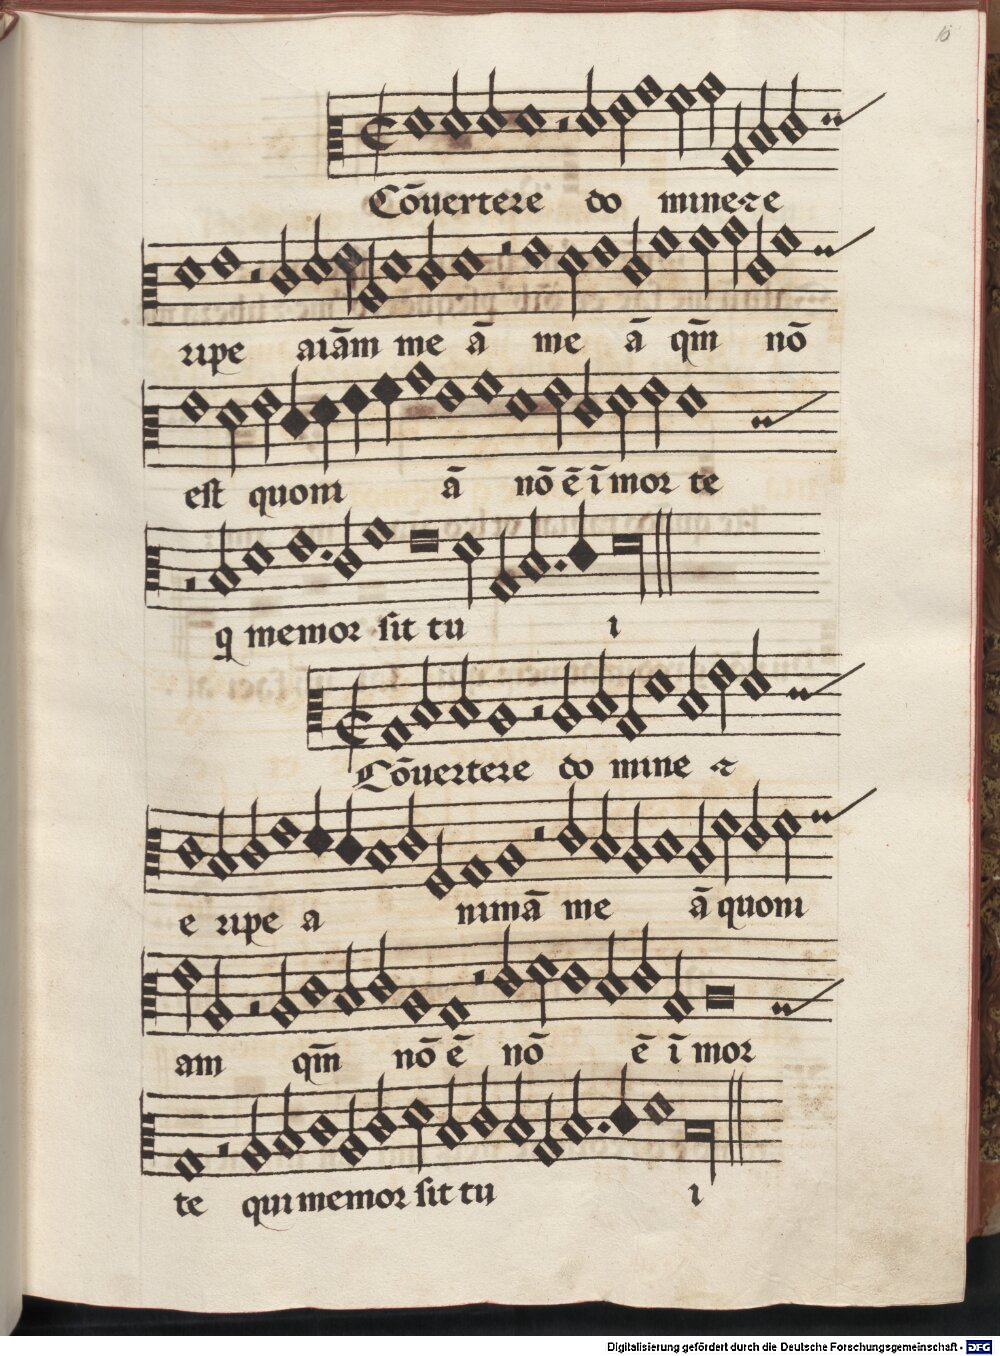 16
Cōuertere do mine ⁊ e
ripe aıām me ā me ā qm̄ nō
est quoni ā nō ē ī mor te
q memor sit tu i
Cōuertere do mine ⁊
e ripe a nimā me ā quoni
am qm̄ nō ē nō ē ī mor
te qui memor sit tu i
Digitalisierung gefördert durch die Deutsche Forschungsgemeinschaft - DFG